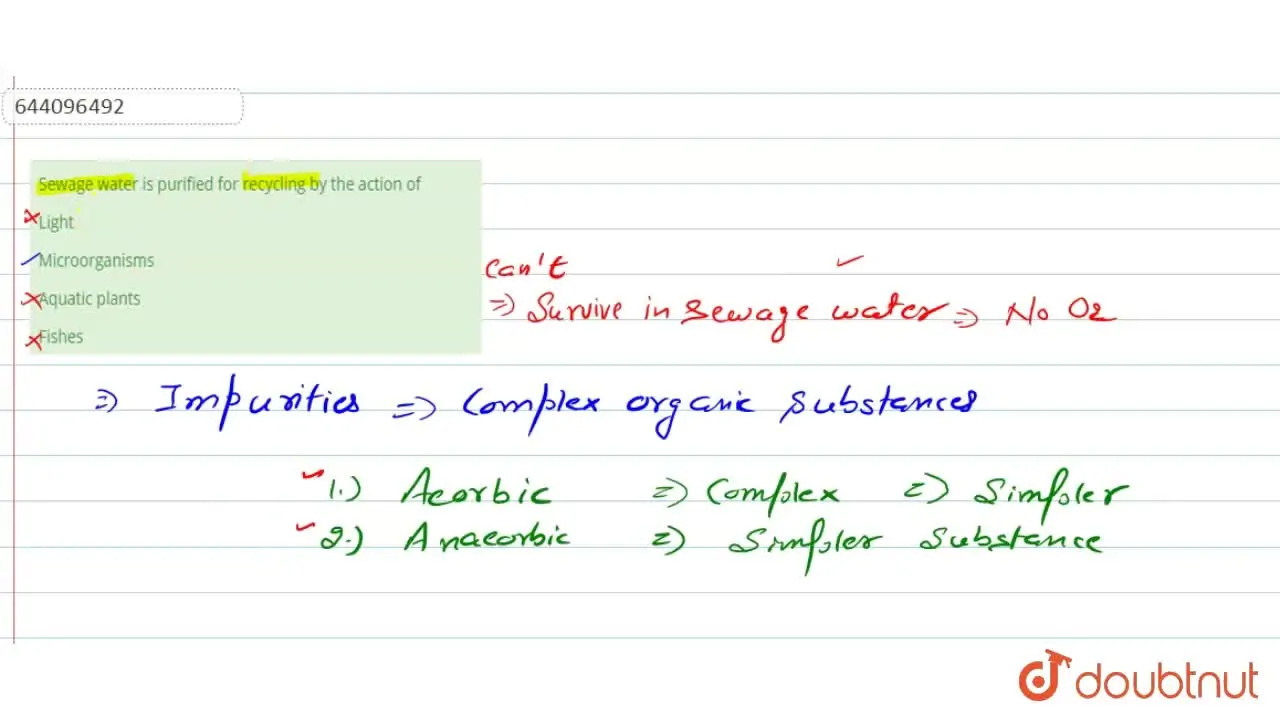 644096492
Sewage water is purified for recycling by the action of
Light
Microorganisms
Aquatic plants
Fishes
Can't
=> Survive in sewage water => No O2
=> Impurities => Complex organic substances
1.) Aeorbic => Complex => Simpler
2.) Anaeorbic => Simpler Substance
doubtnut